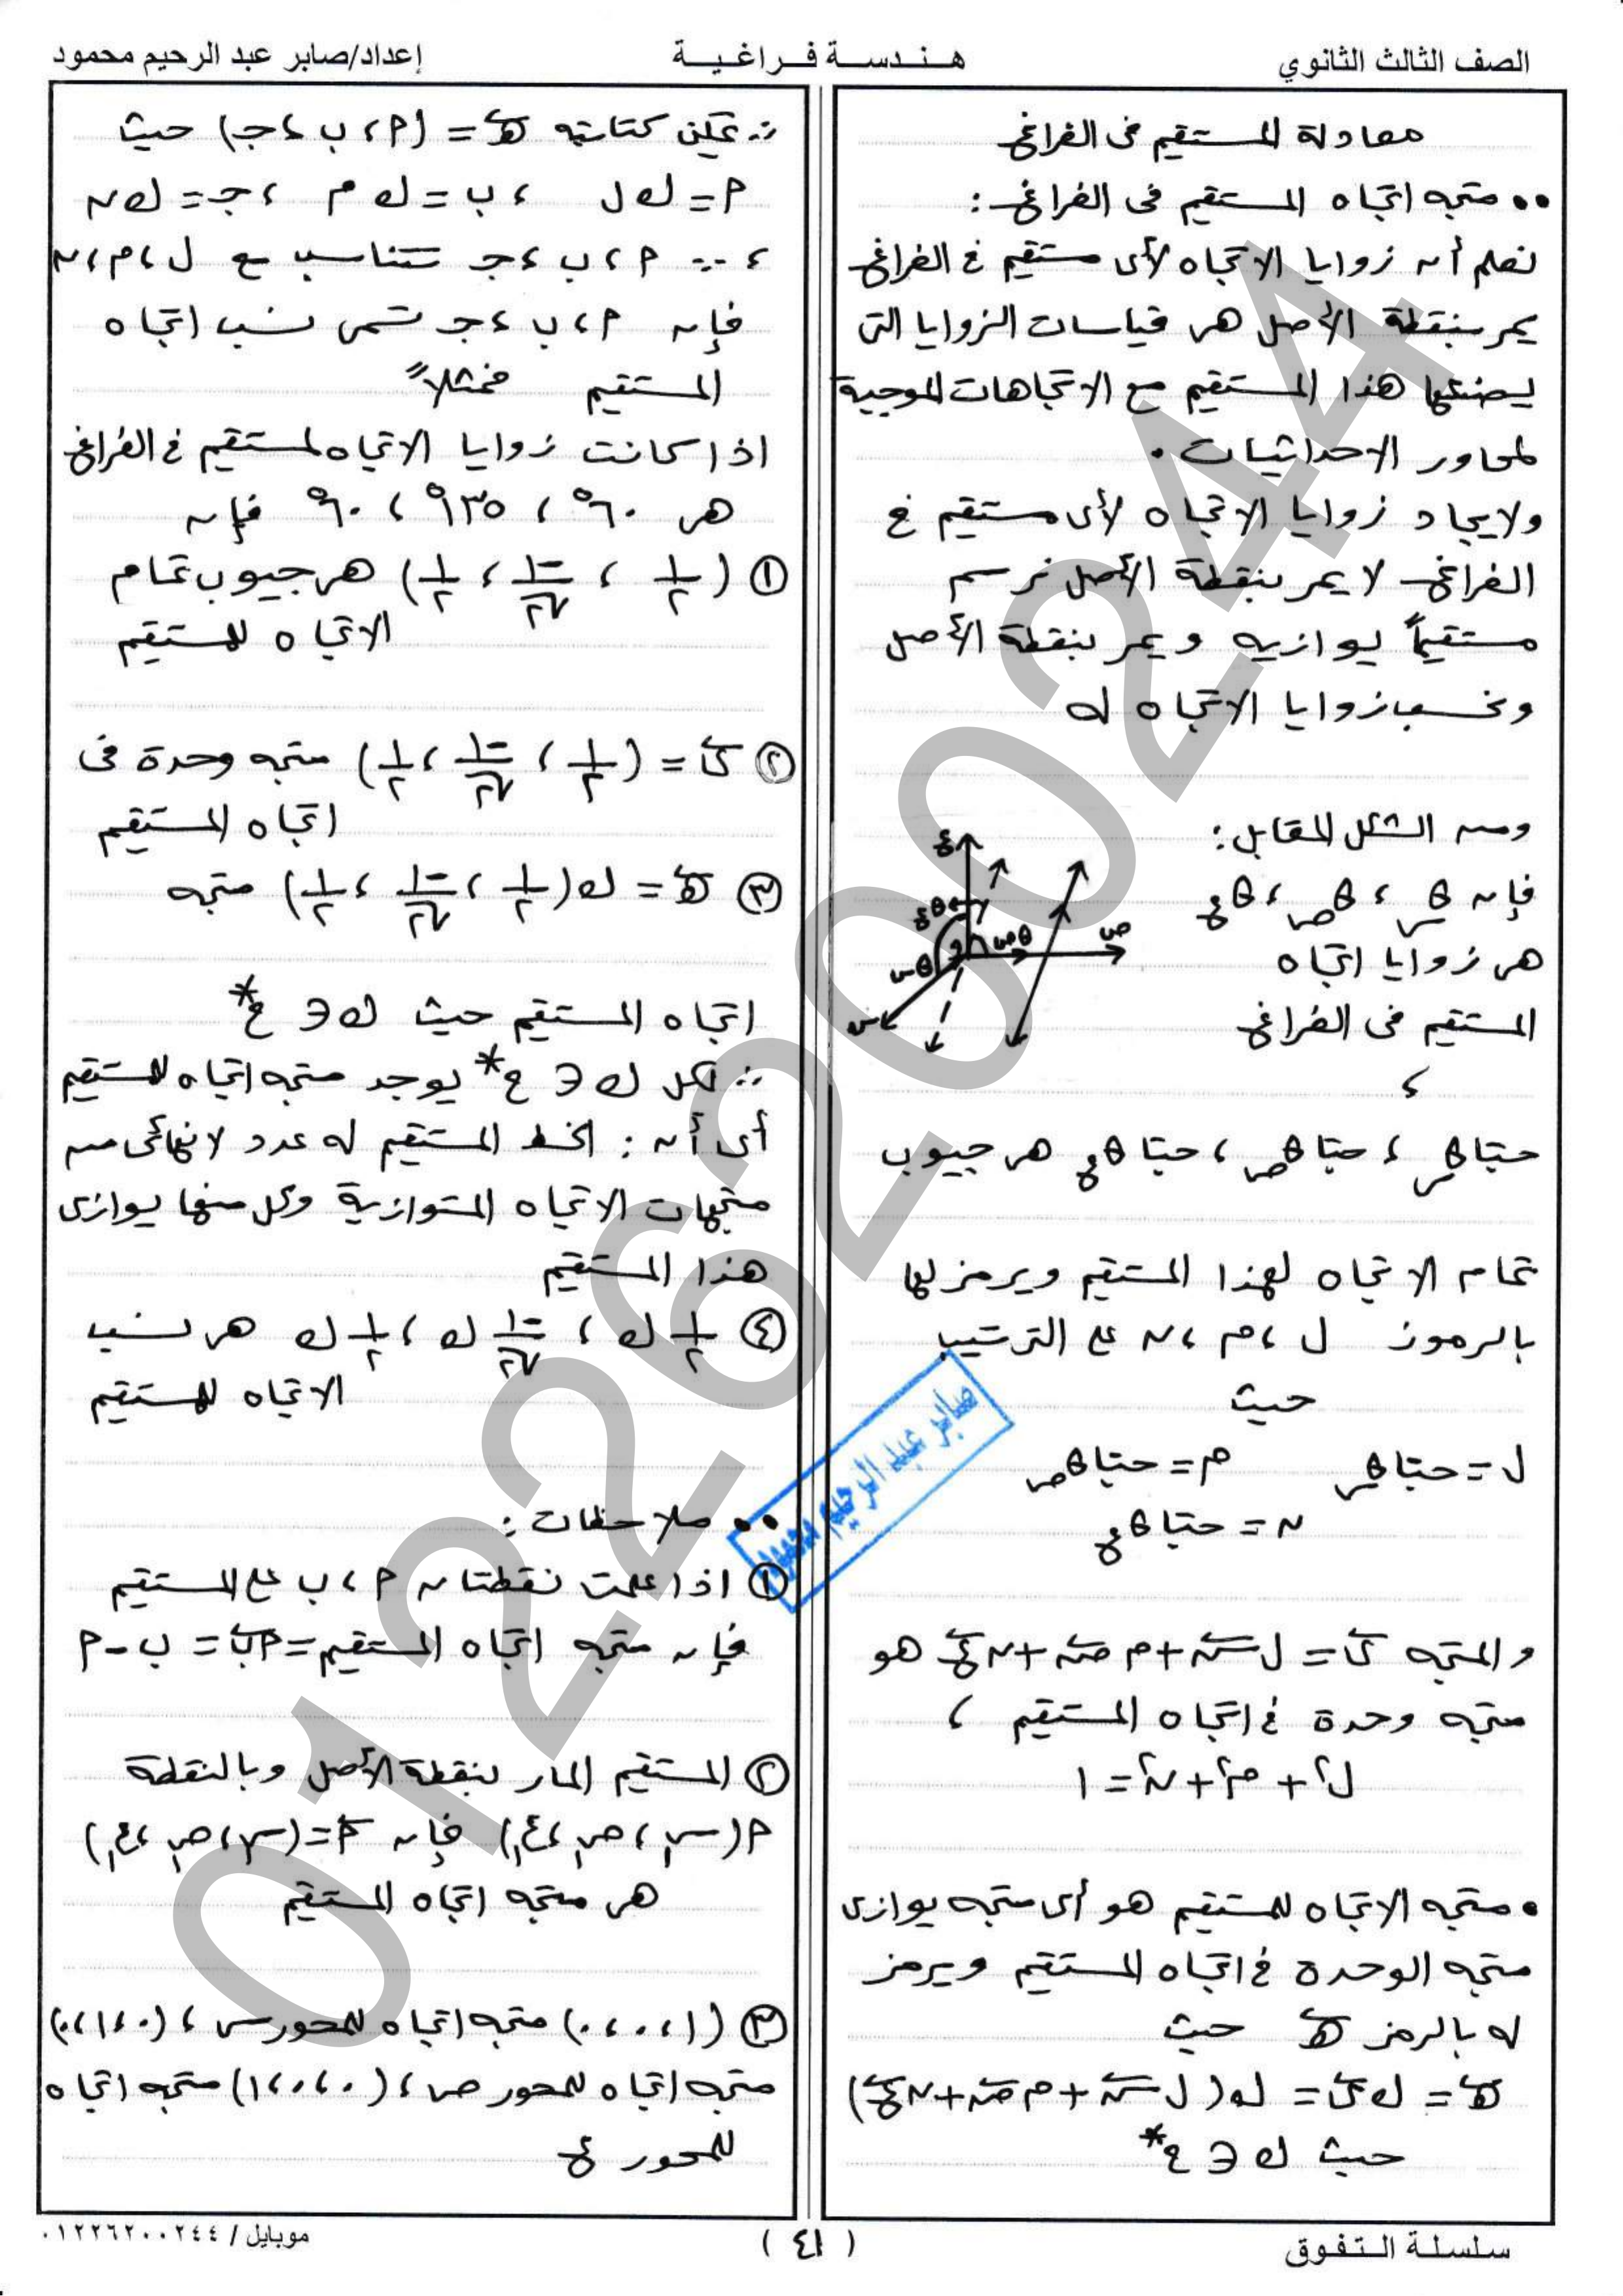 الصف الثالث الثانوي
هـنـدسـة فـراغـيـة
إعداد/صابر عبد الرحيم محمود
معادلة المستقيم فى الفراغ
•• متجه اتجاه المستقيم فى الفراغ :
نعلم أن زوايا الاتجاه لأى مستقيم فى الفراغ
يمر بنقطة الأصل هى قياسات الزوايا التى
يصنعها هذا المستقيم مع الاتجاهات الموجبة
لمحاور الاحداثيات .
ولايجاد زوايا الاتجاه لأى مستقيم فى
الفراغ لا يمر بنقطة الأصل نرسم
مستقيماً يوازيه ويمر بنقطة الأصل
ونحسب زوايا الاتجاه له
ومن الشكل المقابل :
فإن θس ، θص ، θع
هى زوايا اتجاه
المستقيم فى الفراغ
،
ع
θع
θص
ص
θس
و
س
حتا θس ، حتا θص ، حتا θع هى جيوب
تمام الاتجاه لهذا المستقيم ويرمز لها
بالرموز ل ، م ، ن على الترتيب
حيث
ل = حتا θس م = حتا θص
ن = حتا θع
والمتجه ى = ل س + م ص + ن ع هو
متجه وحدة فى اتجاه المستقيم ،
ل² + م² + ن² = ١
• متجه الاتجاه للمستقيم هو أى متجه يوازى
متجه الوحدة فى اتجاه المستقيم ويرمز
له بالرمز هـ حيث
هـ = ك ى = ك ( ل س + م ص + ن ع )
حيث ك ∈ ح*
∴ يمكن كتابته هـ = (م ، ب ، جـ) حيث
م = ك ل ، ب = ك م ، جـ = ك ن
، ∵ م ، ب ، جـ تتناسب مع ل ، م ، ن
فإن م ، ب ، جـ تسمى نسب اتجاه
المستقيم فمثلاً
اذا كانت زوايا الاتجاه لمستقيم فى الفراغ
هى ٦٠° ، ١٣٥° ، ٦٠° فإن
① (١/٢ ، -١/√٢ ، ١/٢) هى جيوب تمام
الاتجاه للمستقيم
② ى = (١/٢ ، -١/√٢ ، ١/٢) متجه وحدة فى
اتجاه المستقيم
③ هـ = ك (١/٢ ، -١/√٢ ، ١/٢) متجه
اتجاه المستقيم حيث ك ∈ ح*
∵ لكل ك ∈ ح* يوجد متجه اتجاه للمستقيم
أى أن : الخط المستقيم له عدد لا نهائى من
متجهات الاتجاه المتوازية وكل منها يوازى
هذا المستقيم
④ ١/٢ ك ، -١/√٢ ك ، ١/٢ ك هى نسب
الاتجاه للمستقيم
•• ملاحظات :
① اذا علمت نقطتان م ، ب على المستقيم
فإن متجه اتجاه المستقيم = م ب = ب - م
② المستقيم المار بنقطة الأصل وبالنقطة
م (س١ ، ص١ ، ع١) فإن م = (س١ ، ص١ ، ع١)
هى متجه اتجاه المستقيم
③ (١ ، ٠ ، ٠) متجه اتجاه لمحور س ، (٠ ، ١ ، ٠)
متجه اتجاه لمحور ص ، (٠ ، ٠ ، ١) متجه اتجاه
لمحور ع
صابر عبد الرحيم محمود
01226200244
سلسلة الـتفوق
( ٤١ )
موبايل / ٠١٢٢٦٢٠٠٢٤٤